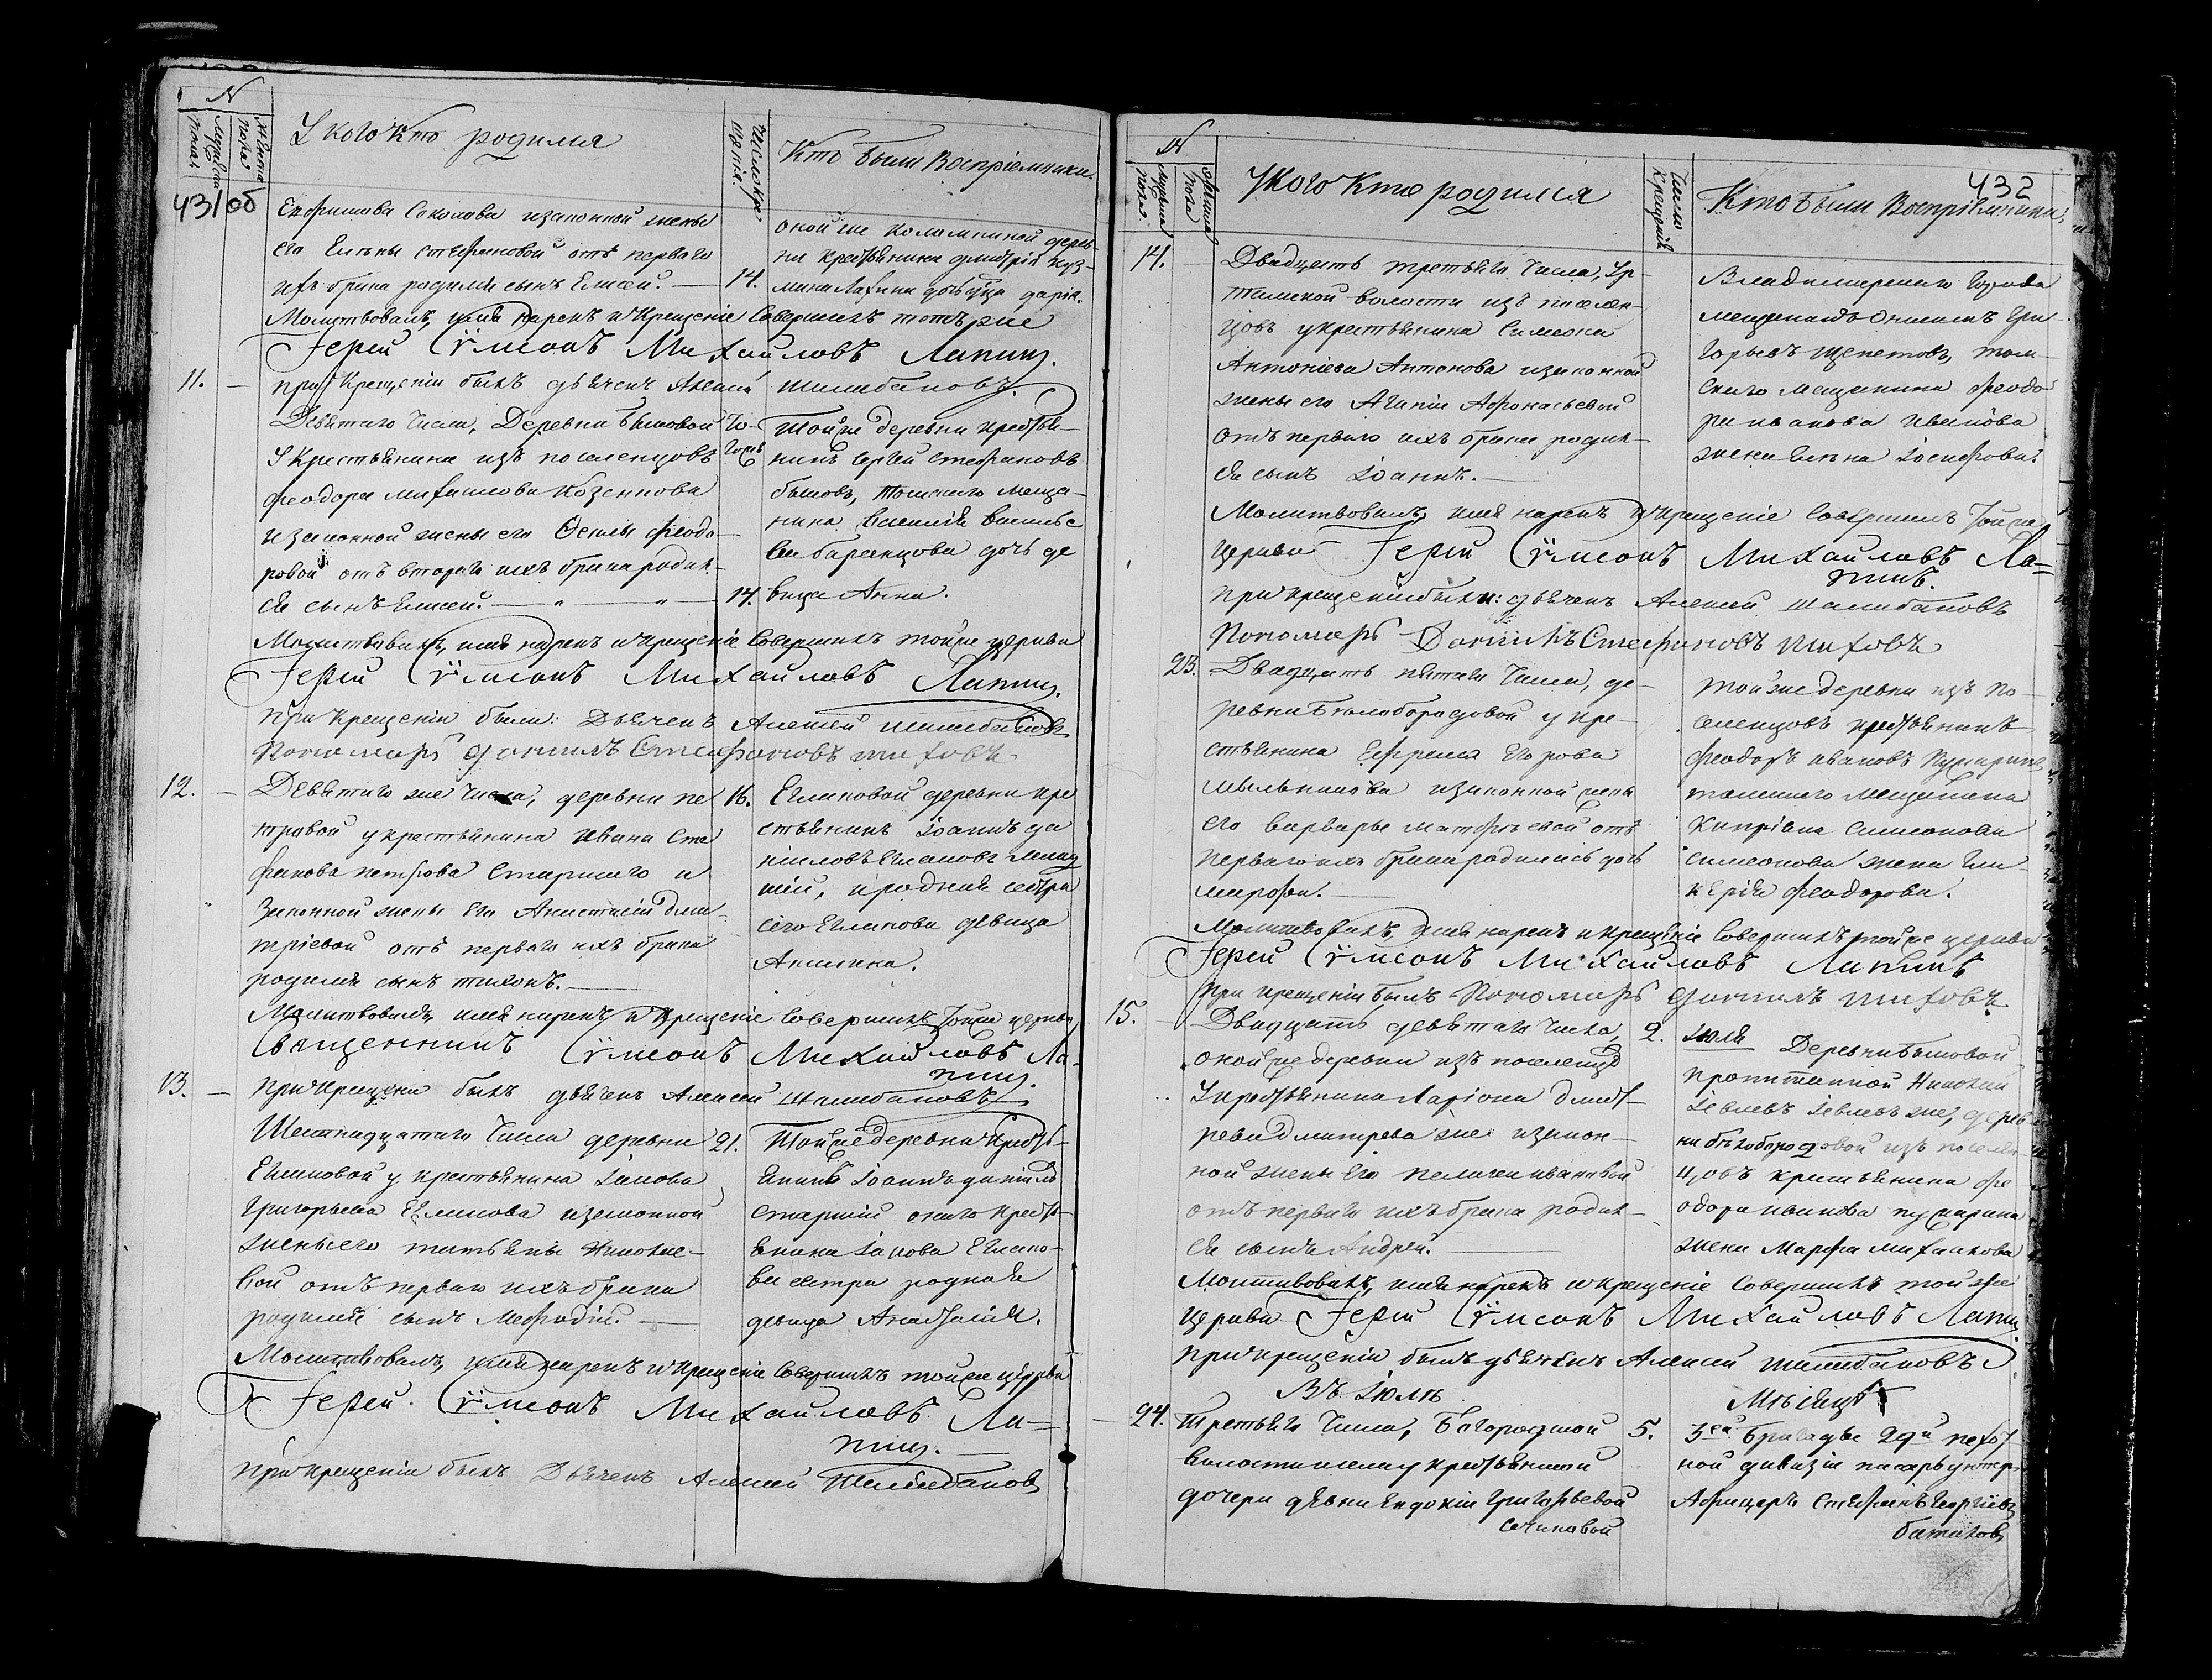 N
Мужеска пола
Женска пола
У кого кто родился
Число крещенія.
Кто были Воспріемники.
431 об
Соколова изаконной жены
его Елены Стефановой отъ перваго
ихъ брака родился сынъ Елисей. 14.
оной же Коломниной дерев-
ни крестьянина Дмитрія Куз-
мина дочь дарія.
Молитвовалъ, имя нарекъ и Крещеніе Совершилъ тотъ же
Іерей Сѵмеонъ Михаиловъ Лапинъ.
11. при Крещеніи былъ дьячекъ Алексей Шалабановъ.
Девятаго Числа, Деревни Бышовой
У Крестьянина изъ поселенцовъ
Феодора Михаилова Козенкова
изаконной жены его Феклы Феодо-
ровой отъ втораго ихъ брака родил-
ся сынъ Елисей. 14.
Той же деревни крестья-
нинъ Сергей Стефановъ
бышовъ, Томскаго меща-
нина Василія Василье
ва баранцова дочь де
вица Анна.
Молитвовалъ, имя нарекъ и крещеніе Совершилъ той же церкви
Іерей Сѵмеонъ Михаиловъ Лапинъ.
При Крещеніи были: Дьячекъ Алексей Шалабановъ
Пономарь Даниилъ Стефановъ Тиховъ
12. Девятаго же числа, деревни пе
тровой у крестьянина Ивана Сте
фанова петрова Старшаго и
законной жены его Анастасіи дми-
тріевой отъ перваго ихъ брака
родился сынъ тихонъ.
16. Еглаковой деревни кре
стьянинъ Іоаннъ да
ніиловъ Еглаковъ млад
шій, и родная сестра
сего Еглакова девица
Акилина.
Молитвовалъ, имя нарекъ и Крещеніе Совершилъ Той же церкви
Священникъ Сѵмеонъ Михаиловъ Ла-
пинъ.
13. При крещеніи былъ дьячекъ Алексей Шалабановъ
Шестнадцатаго Числа деревни
Еглаковой у крестьянина Іакова
Григорьева Еглакова изаконной
жены его татьяны Николае-
вой отъ перваго ихъ брака
родился сынъ Мефодій.
21. Той же деревни Кресть-
янинъ Іоаннъ даніилов
Старшій онаго кресть-
янина Іакова Еглако-
ва сестра родная
девица Анастасія.
Молитвовалъ, имя нарекъ и Крещеніе Совершилъ той же церкви
Іерей Сѵмеонъ Михаиловъ Ла-
пинъ.
При крещеніи былъ Дьячекъ Алексей Шалабановъ
N
Мужеска пола.
пола
У кого кто родился
Число Крещенія
Кто были Воспріемники
432
14. Двадцать третьяго Числа, Ур-
тамской волости изъ поселен-
цовъ у крестьянина Симеона
Антоніева Антонова изаконной
жены его Агапіи Афонасьевой
отъ перваго ихъ брака родил-
ся сынъ Іоаннъ.
Владимерскаго Города
мещанинъ Онисимъ Гри-
горьевъ Щепетовъ, том-
скаго мещанина Феодо
ра иванова иванова
жена Елена Іосифова.
Молитвовалъ, имя нарекъ и Крещеніе Совершилъ Той же
Церкви Іерей Сѵмеонъ Михаиловъ Ла-
пинъ.
При крещеніи были: дьячекъ Алексей Шалабановъ
Пономарь Даниилъ Стефановъ Тиховъ
23. Двадцать пятаго Числа, де-
ревни Белобородовой у кре-
стьянина Ефрема Егорова
мыльникова изаконной жены
его Варвары Матфеевой отъ
перваго ихъ брака родилась дочь
марфа.
Той же деревни изъ по-
селенцовъ крестьянинъ
Феодоръ ивановъ
томскаго мещанина
Кипріана Симеонова
симеонова жена Гли-
керія Феодорова.
Молитвовалъ, имя нарекъ и крещеніе Совершилъ той же церкви
Іерей Сѵмеонъ Михаиловъ Лапинъ
При крещеніи былъ Пономарь Даниилъ Тиховъ.
15. Двадцать девятаго числа,
оной же деревни изъ поселенцов
У крестьянина Ларіона дмит-
рева дмитрева же изакон-
ной жены Его пелагеи ивановой
отъ перваго ихъ брака родил-
ся сынъ Андрей.
2. Іюля Деревни Бышовой
пропитанной Николай
Іевлевъ Іевлевъ же, дерев-
ни белобородовой изъ поселен-
цовъ крестьянина фе
одора иванова
жена Марфа михаилова
Молитвовалъ, имя нарекъ и крещеніе Совершилъ той же
Церкви Іерей Сѵмеонъ Михаиловъ Лапинъ
При крещеніи былъ дьячекъ Алексей Шалабановъ
Въ Іюле Месяце
24. Третьяго Числа, Богородской
волости крестьянской
дочери девки Евдокіи Григорьевой
5. 3ей Бригады 29й пехот
ной дивизіи писарь унтер
Афицеръ Стефанъ Георгіевъ